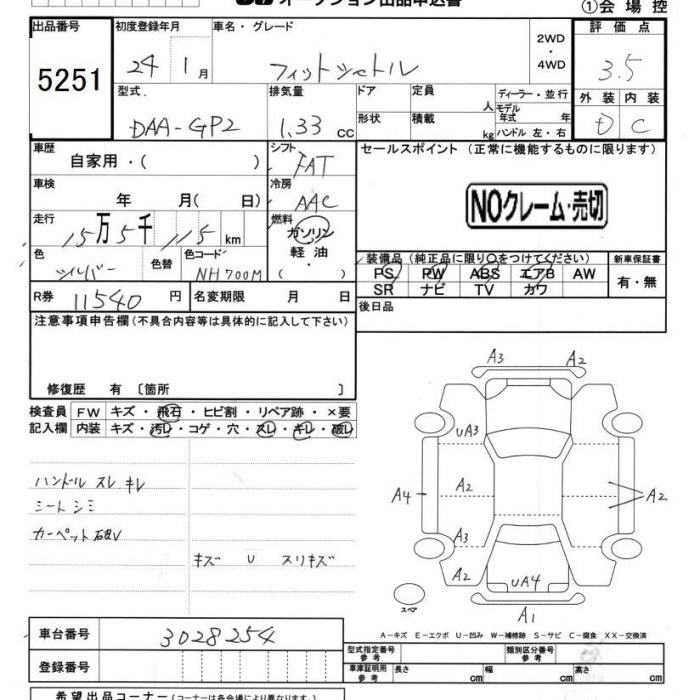 オークション出品申込書
①会場控
出品番号
5251
初度登録年月
24 1月
車名・グレード
フィットシャトル
2WD
・
4WD
評価点
3.5
外装 内装
D C
型式
DAA-GP2
排気量
1.33 CC
ドア
定員
人
形状
積載
kg
ディーラー・並行
モデル
年式 年
ハンドル 左・右
車歴
自家用・( )
シフト
FAT
車検
年 月( 日)
冷房
AAC
走行
15万5千115km
燃料
ガソリン
軽油
( )
色
シルバー
色替
色コード
NH700M
R券
11540円
名変期限 月 日
セールスポイント (正常に機能するものに限ります)
NOクレーム・売切
装備品 (純正品に限り○をつけてください)
PS PW ABS エアB AW
SR ナビ TV カワ
新車保証書
有・無
後日品
注意事項申告欄(不具合内容等は具体的に記入して下さい)
修復歴 有 〔箇所 〕
検査員
記入欄
FW キズ・飛石・ヒビ割・リペア跡・×要
内装 キズ・汚レ・コゲ・穴・スレ・キレ・破レ
ハンドル スレ キレ
シートシミ
カーペット破レ
キズ U スリキズ
A3 A2
UA3
A2
A4
A2
A3
A2
UA4
A1
スペア
A-キズ E-エクボ U-凹み W-補修跡 S-サビ C-腐食 XX-交換済
車台番号
3028254
登録番号
型式指定番号
参考
類別区分番号
参考
車庫証明用
参考
長さ cm 幅 cm 高さ cm
希望出品コーナー(コーナー名は各会場により異なります)